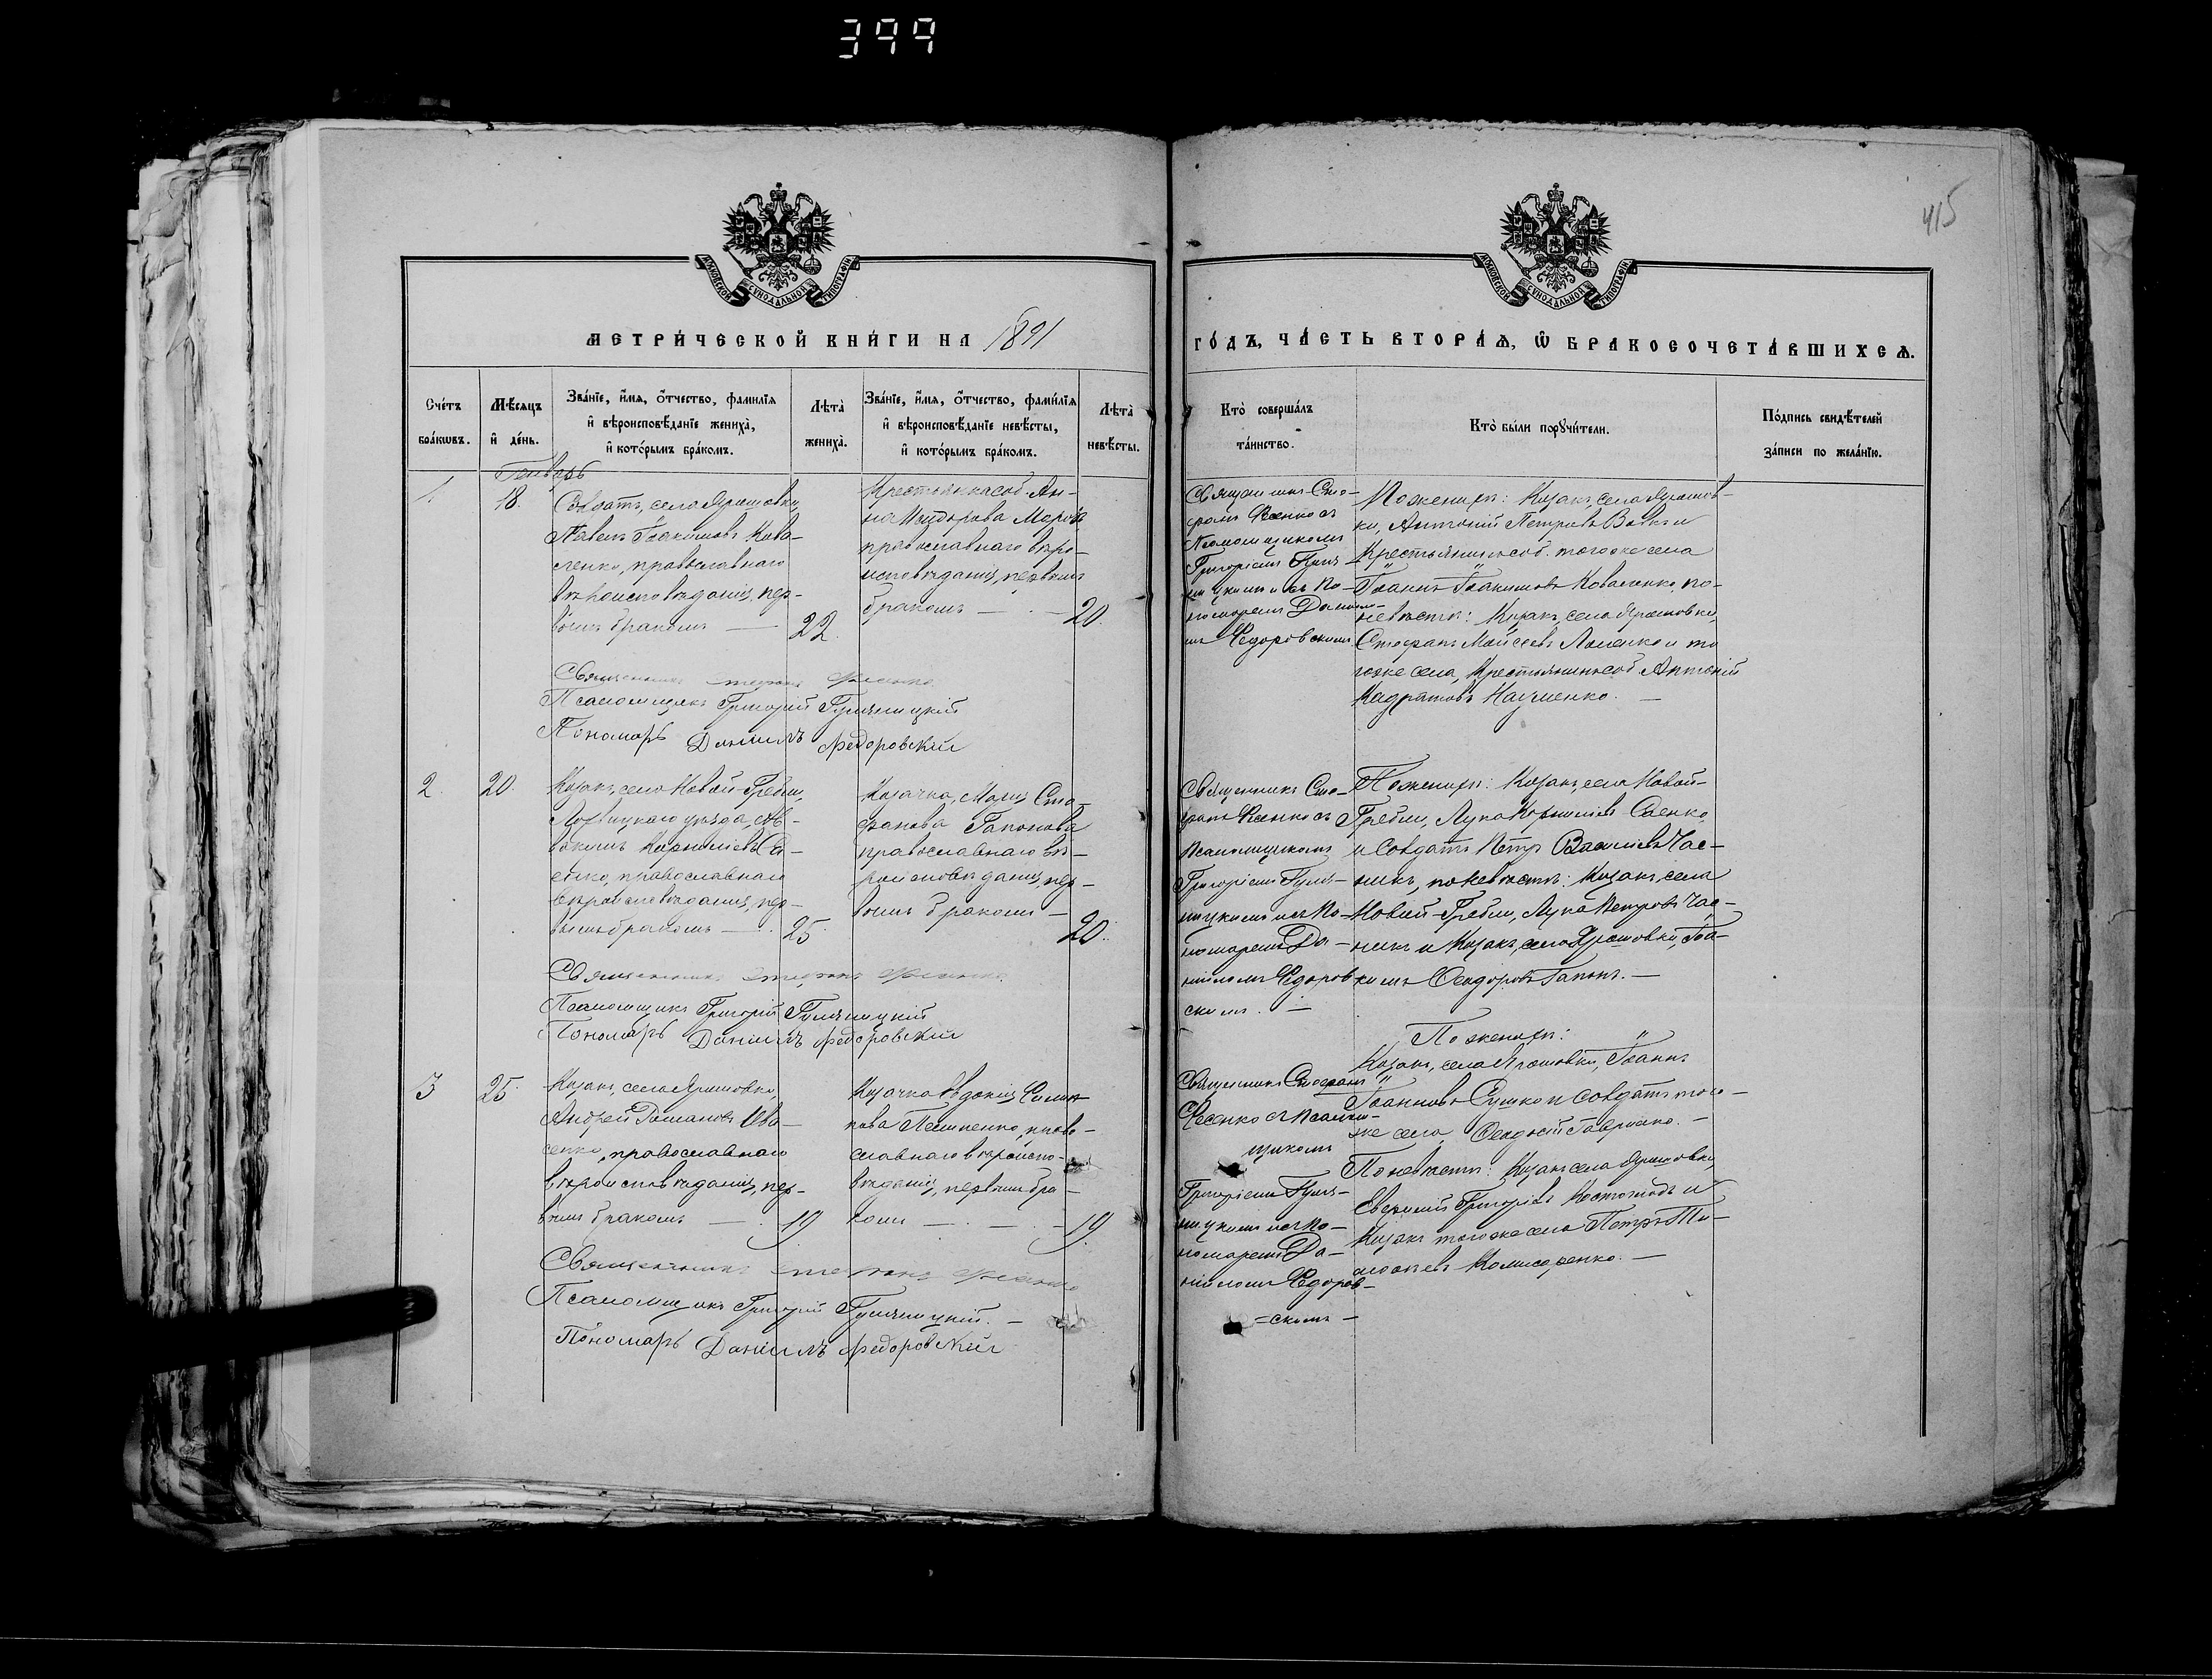 399
415
МОСКОВСКОЙ СѴНОДАЛЬНОЙ ТИПОГРАФІИ
МОСКОВСКОЙ СѴНОДАЛЬНОЙ ТИПОГРАФІИ
МЕТРИ́ЧЕСКОЙ КНИ́ГИ НА 1891
ГО́ДЪ, ЧА́СТЬ ВТОРА́Ѧ, Ѿ БРАКОСОЧЕТА́ВШИХСѦ.
Сче́тъ
бра́кѡвъ.
Мѣ́сяцъ
и́ де́нь.
Зва́нїе, и́мя, о́тчество, фами́лїя
и́ вѣроисповѣ́данїе жениха̀,
и́ кото́рымъ бра́комъ.
Лѣта̀
жениха̀.
Зва́нїе, и́мя, о́тчество, фами́лїя
и́ вѣроисповѣ́данїе невѣ́сты,
и́ кото́рымъ бра́комъ.
Лѣта̀
невѣ́сты.
Кто̀ соверша́лъ
та́инство.
Кто̀ бы́ли порꙋчи́тели.
По́дпись свидѣ́телей
за́писи по жела́нїю.
Генварь
1.
18.
Солдатъ, села Ярошовки,
Павелъ Іоакимовъ Кова-
ленко, православнаго
вѣроисповѣданія, пер-
вымъ бракомъ —
22.
Крестьянка соб. Ан-
на
православнаго вѣро-
исповѣданія, первымъ
бракомъ — . —
20.
Священникъ Сте-
фанъ съ
Псаломщикомъ
Григоріемъ
и съ По-
номаремъ Даніи-
ломъ Федоровскимъ
По женихѣ: Козакъ, села Ярошов-
ки, Антоній Петровъ и
Крестьянинъ соб. того же села
Іоаннъ Іоакимовъ Коваленко, по
невѣстѣ: Козакъ, села Ярошовки,
Стефанъ Моисеевъ и то
гоже села, Крестьянинъ соб Антоній
Науменко. —
Священникъ Стефанъ
Псаломщикъ Григорій
Пономарь Даніилъ Федоровскій
2.
20.
Козакъ, села Новой-Гребли,
Лохвицкаго уѣзда,
Корниліевъ Са-
енко, православнаго
вѣроисповѣданія, пер-
вымъ бракомъ — .
25.
Козачка, Марія Сте-
фанова Гапонова
православнаго вѣ-
роисповѣданія, пер-
вымъ бракомъ —
20.
Священникъ Сте-
фанъ съ
Псаломщикомъ
Григоріемъ
и съ По-
номаремъ Да-
ніиломъ Федоров-
скимъ. —
По женихѣ: Козакъ, села Новой-
Гребли, Лука Корниліевъ Саенко,
и Солдатъ Петръ Василіевъ Час-
никъ, по невѣстѣ: Козакъ, села
Новой-Гребли, Лука Петровъ Час-
никъ и Козакъ, села Ярошовки, Іоа-
кимъ Феодоровъ Гапонъ. —
Священникъ Стефанъ
Псаломщикъ Григорій
Пономарь Даніилъ Федоровскій
3
25.
Козакъ, села Ярошовки,
Андрей Романовъ Ива-
сенко, православнаго
вѣроисповѣданія, пер-
вымъ бракомъ — .
19
Козачка Евдокія
право-
славнаго вѣроиспо-
вѣданія, первымъ бра-
комъ — . — . —
19.
Священникъ Стефанъ
съ Псалом-
щикомъ
Григоріемъ
и съ По-
номаремъ Да-
ніиломъ Федоров-
=скимъ —
По женихѣ:
Козакъ, села Ярошовки, Іоаннъ
Іоанновъ и солдатъ того-
же села, —
По невѣстѣ: Козакъ села Ярошовки,
Григоріевъ и
Козакъ того же села Петръ Ти-
моѳеевъ Комисаренко. —
Священникъ Стефанъ
Псаломщикъ Григорій
Пономарь Даніилъ Федоровскій